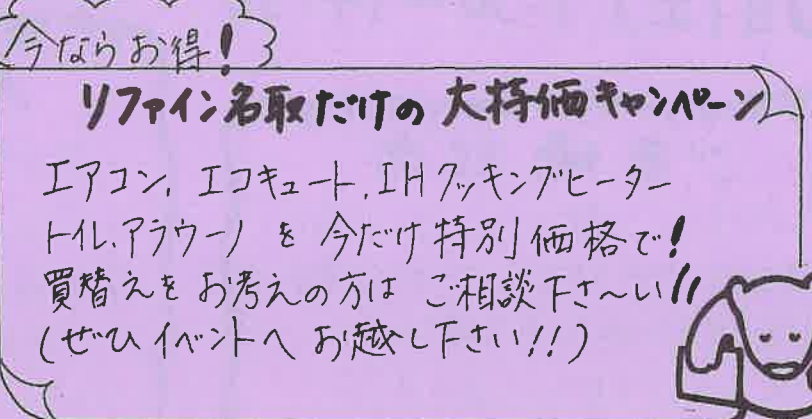 今ならお得!
リファイン名取だけの 大特価キャンペーン
エアコン、エコキュート、IHクッキングヒーター
トイレ、アラウーノ を 今だけ 特別価格で!
買替えを お考えの方は ご相談下さ~い!!
(ぜひ イベントへ お越し下さい!!)